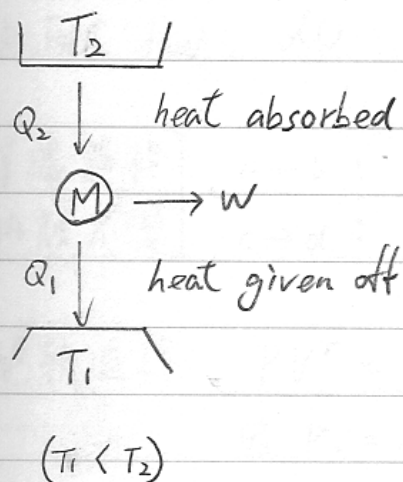 T₂
Q₂ heat absorbed
M → W
Q₁ heat given off
T₁
(T₁ < T₂)